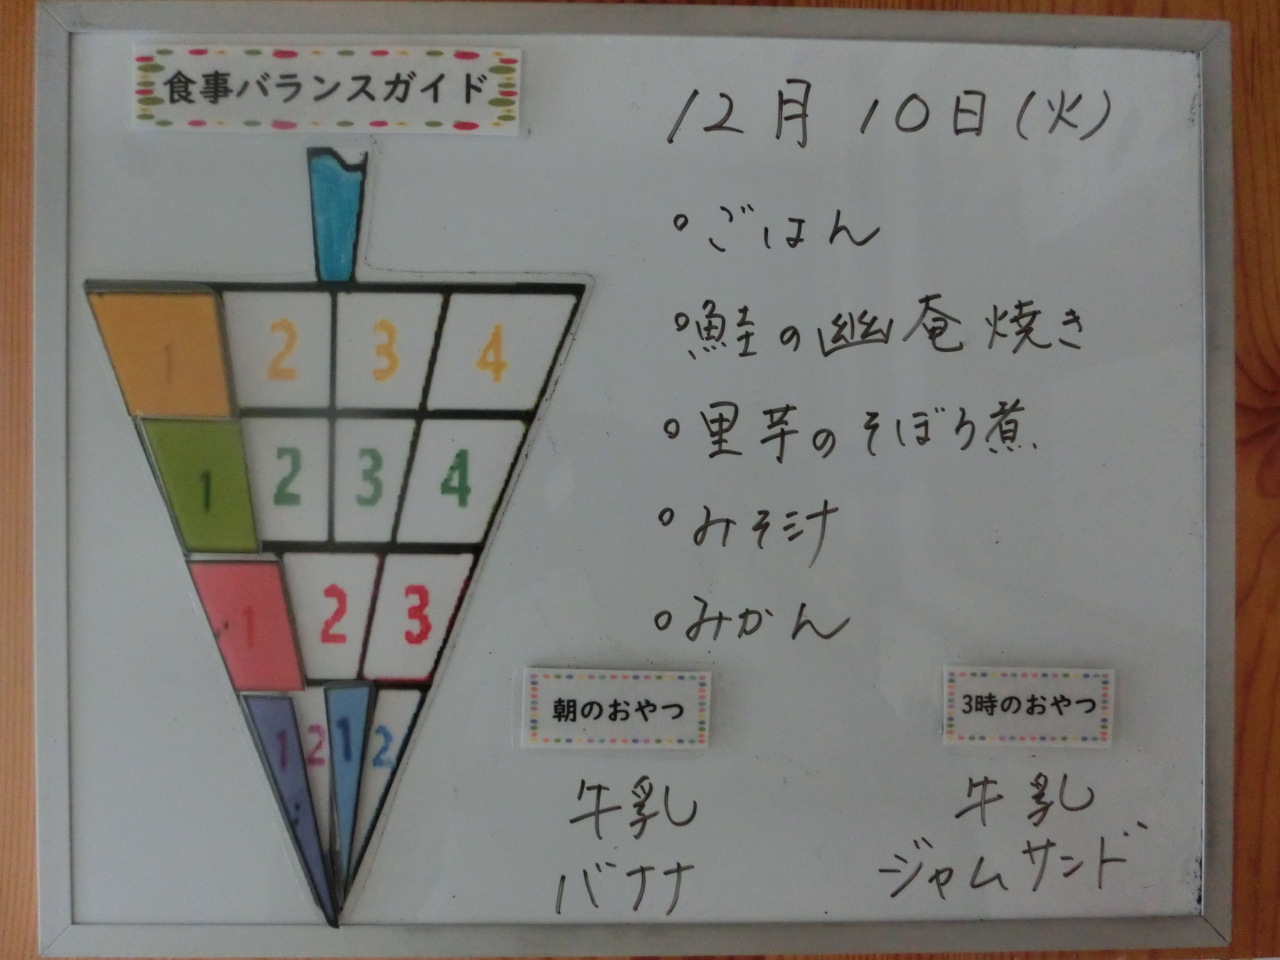 食事バランスガイド
12月10日(火)
ごはん
鮭の幽庵焼き
里芋のそぼろ煮
みそ汁
みかん
1 2 3 4
1 2 3 4
1 2 3
1 2 1 2
朝のおやつ
牛乳
バナナ
3時のおやつ
牛乳
ジャムサンド